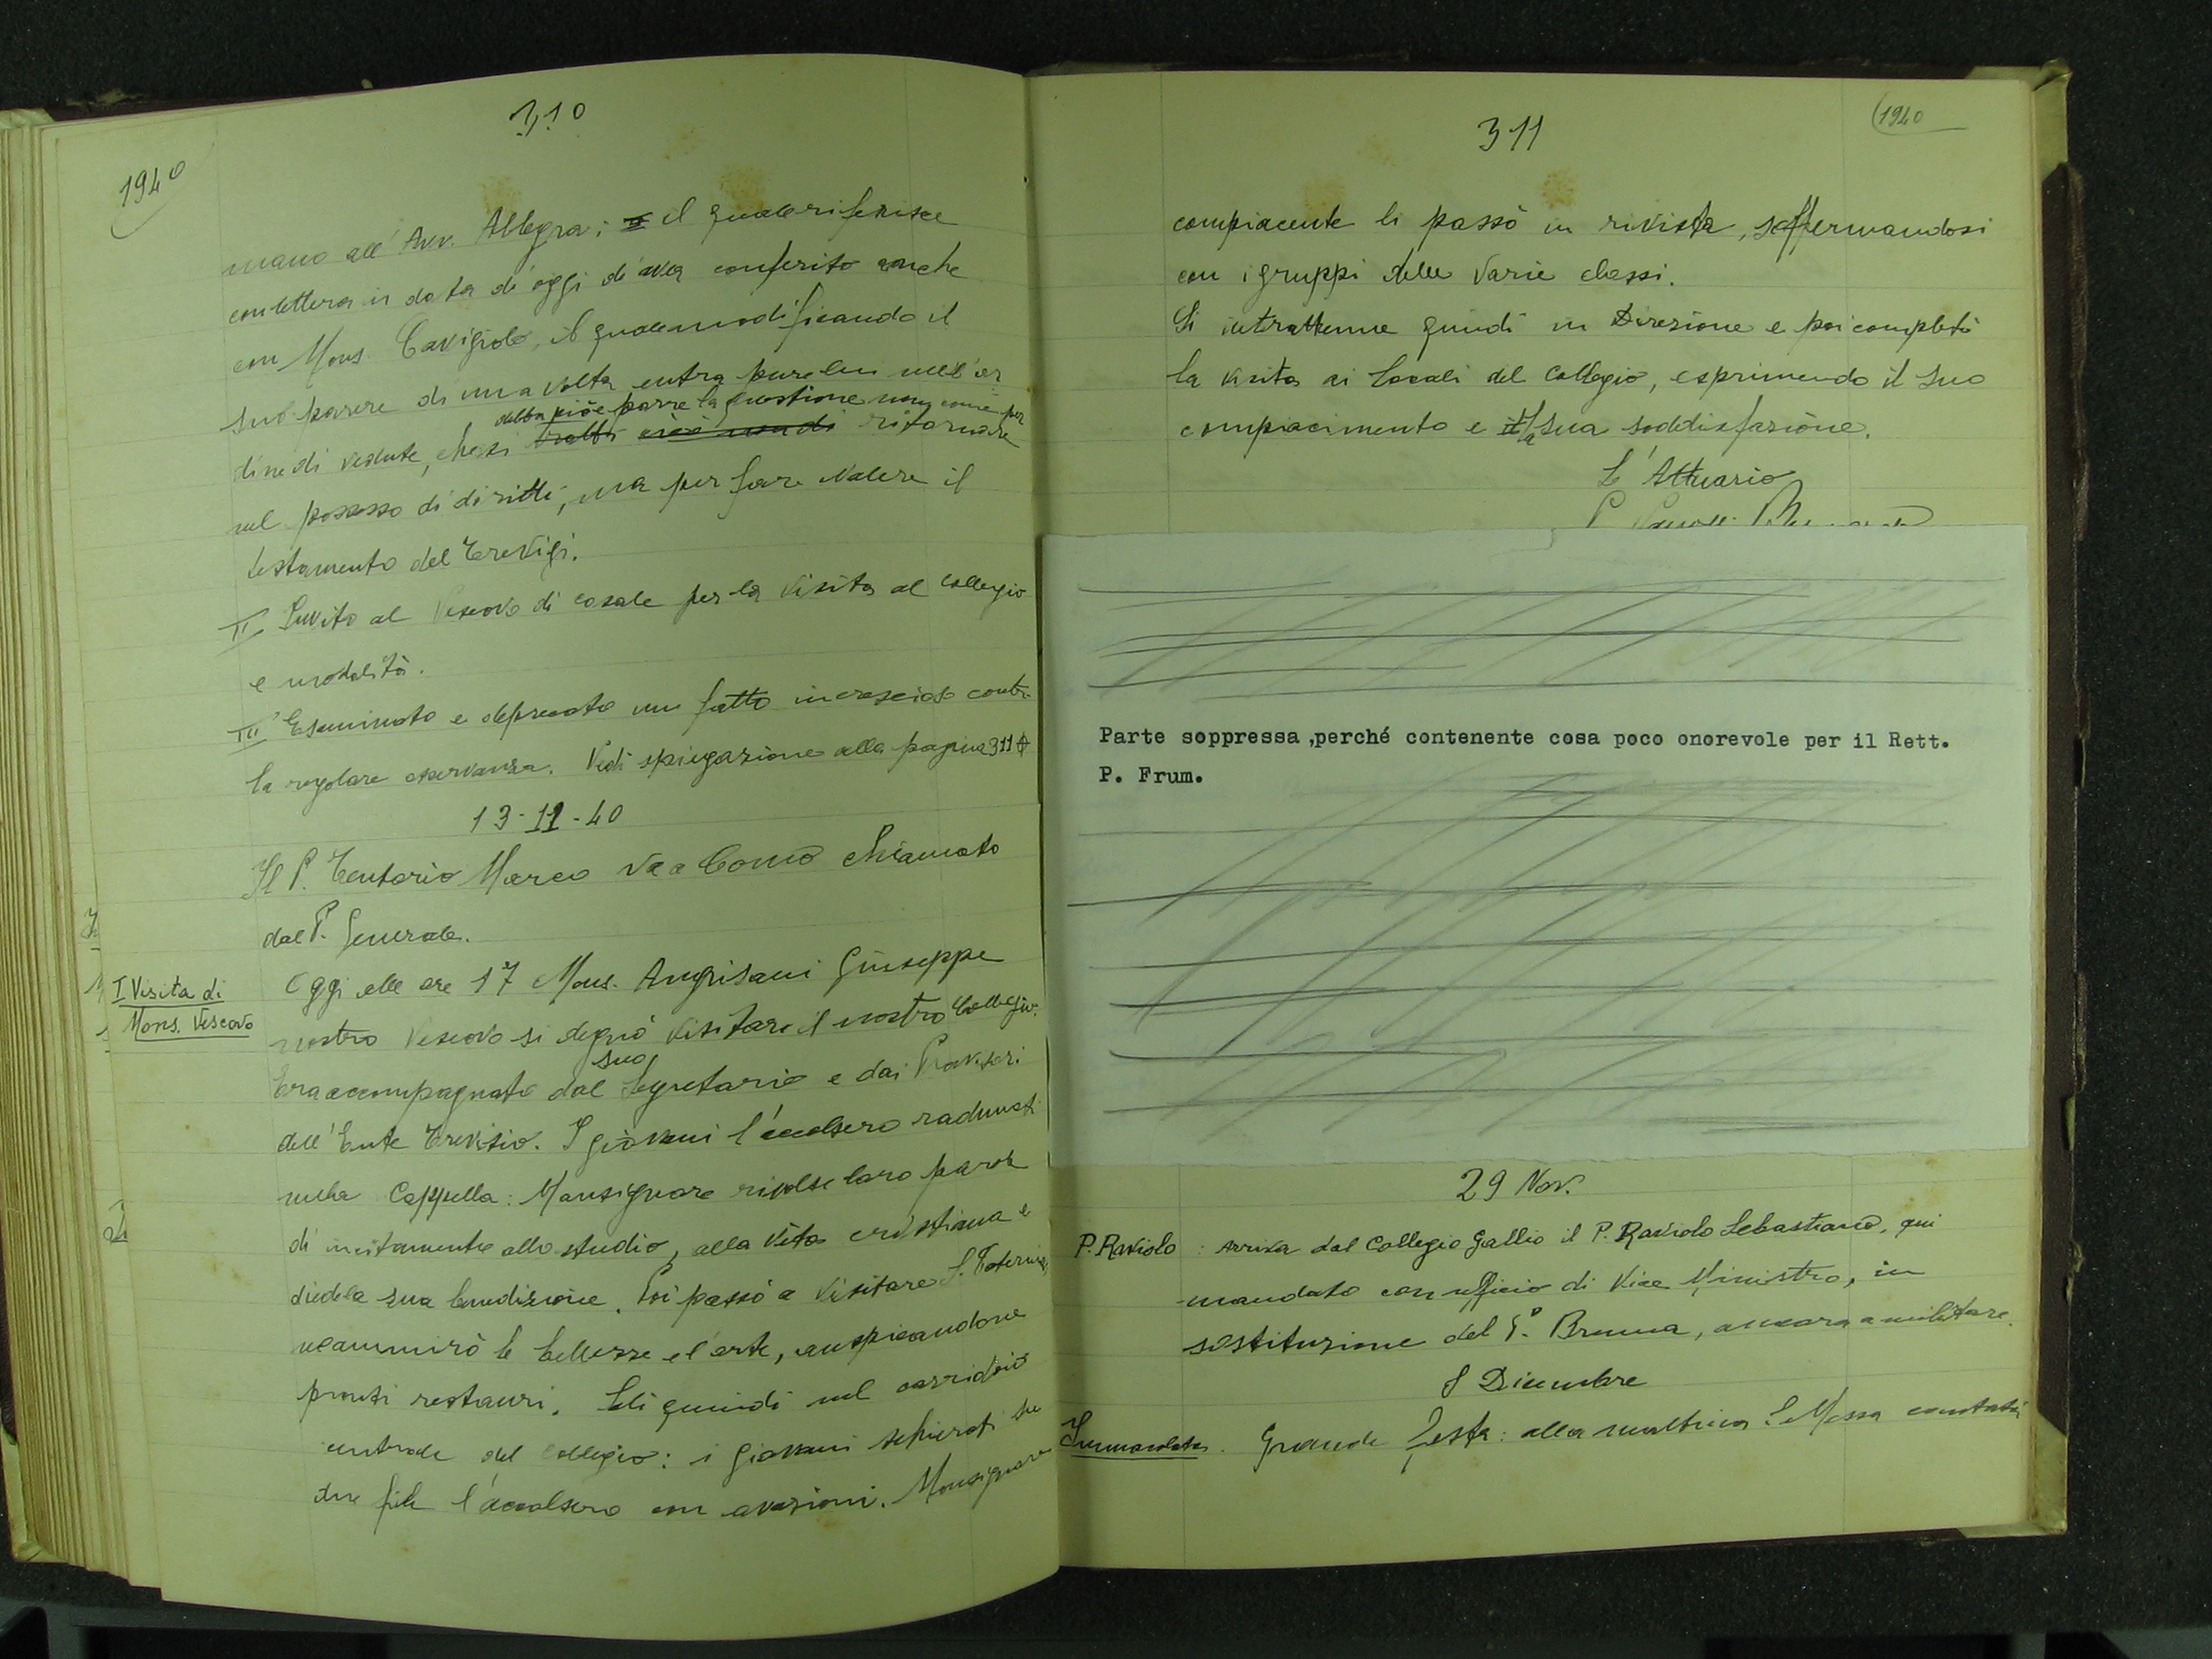 310
1940
mano all'Avv. Allegra; il quale riferisce
con lettera in data di oggi di aver conferito anche
con Mons. Cavigiolo, il quale modificando il
suo parere di una volta entra pure lui nell'or
debba cioè porre la questione non come per
dine di vedute, che si tratti cioè non di ritornare
nel possesso di diritti, ma per fare valere il
testamento del Trevigi.
II Invito al Vescovo di Casale per la visita al Collegio
e modalità.
III Esaminato e deprecato un fatto increscioso contro
la regolare osservanza. Vedi spiegazione alla pagina 311
13-11-40
Il P. Tentorio Marco va a Como chiamato
dal P. Generale.
I Visita di
Mons. Vescovo
Oggi alle ore 17 Mons. Angrisani Giuseppe
nostro Vescovo si degnò visitare il nostro Collegio.
suo
Era accompagnato dal Segretario e dai Provisori
dell'Ente Trevisio. I giovani l'accolsero radunati
nella Cappella: Monsignore rivolse loro parole
di incitamento allo studio, alla vita cristiana e
diede la sua benedizione. Poi passò a visitare S. Caterina,
ne ammirò le bellezze e l'arte, auspicandone
pronti restauri. Salì quindi nel corridoio
centrale del Collegio: i giovani schierati su
due file l'accolsero con ovazioni. Monsignore
311
1940
compiacente li passò in rivista, soffermandosi
con i gruppi delle varie classi.
Si intrattenne quindi in Direzione e poi completò
la visita ai locali del Collegio, esprimendo il suo
compiacimento e il la sua soddisfazione.
L'Attuario
Parte soppressa ,perché contenente cosa poco onorevole per il Rett.
P. Frum.
29 Nov.
P. Raviolo : Arriva dal Collegio Gallio il P. Raviolo Sebastiano, qui
mandato con ufficio di Vice Ministro, in
sostituzione del P. Brenna, ancora a militare.
8 Dicembre
Immacolata. Grande festa: alla mattina S. Messa cantata